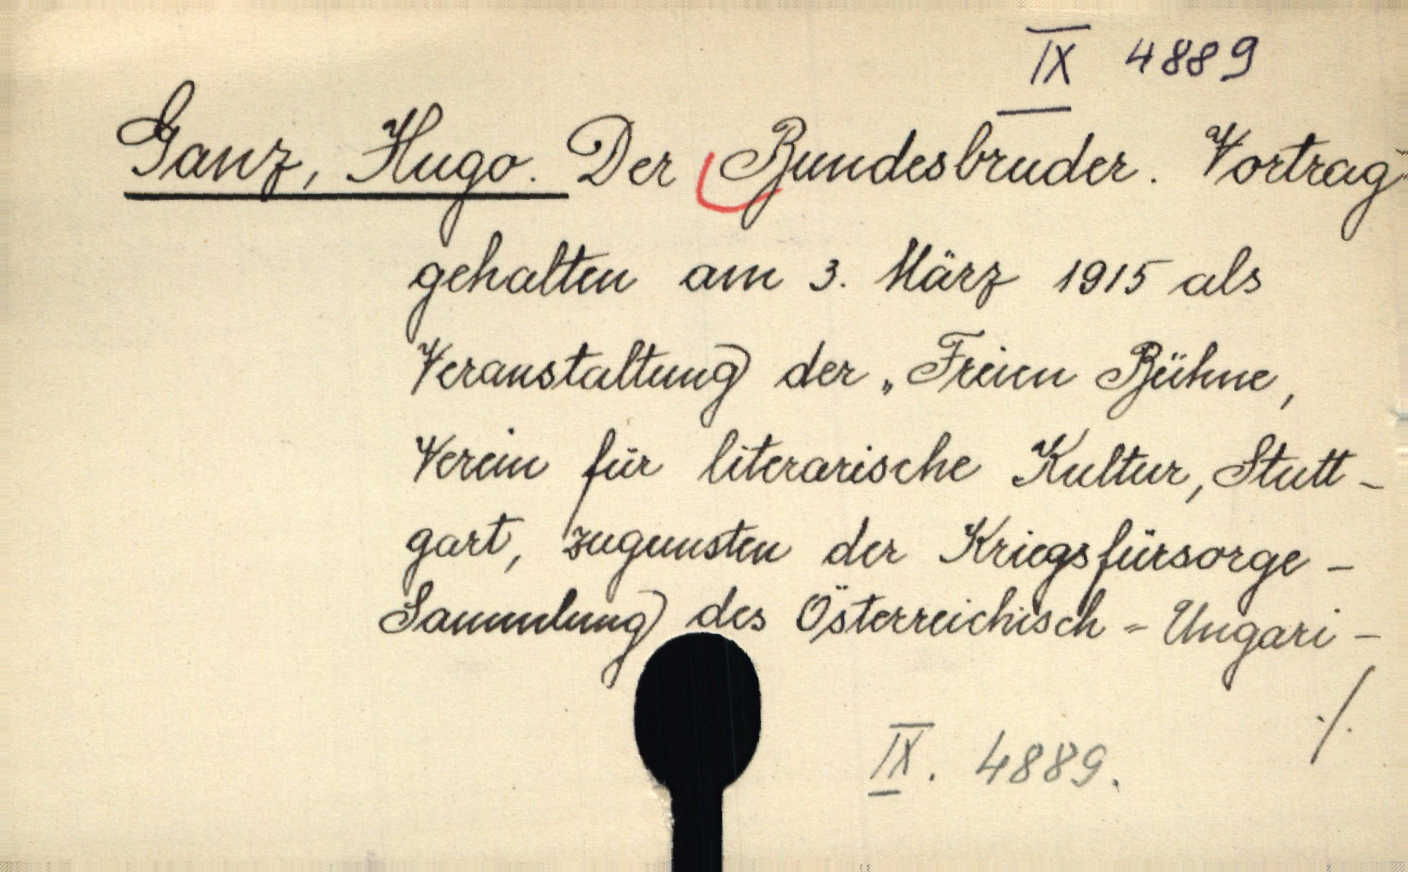 IX 4889
Ganz, Hugo. Der Bundesbruder. Vortrag
gehalten am 3. März 1915 als
Veranstaltung der „Freien Bühne,
Verein für literarische Kultur, Stutt-
gart, zugunsten der Kriegsfürsorge-
Sammlung des Österreichisch-Ungari-
./.
IX. 4889.